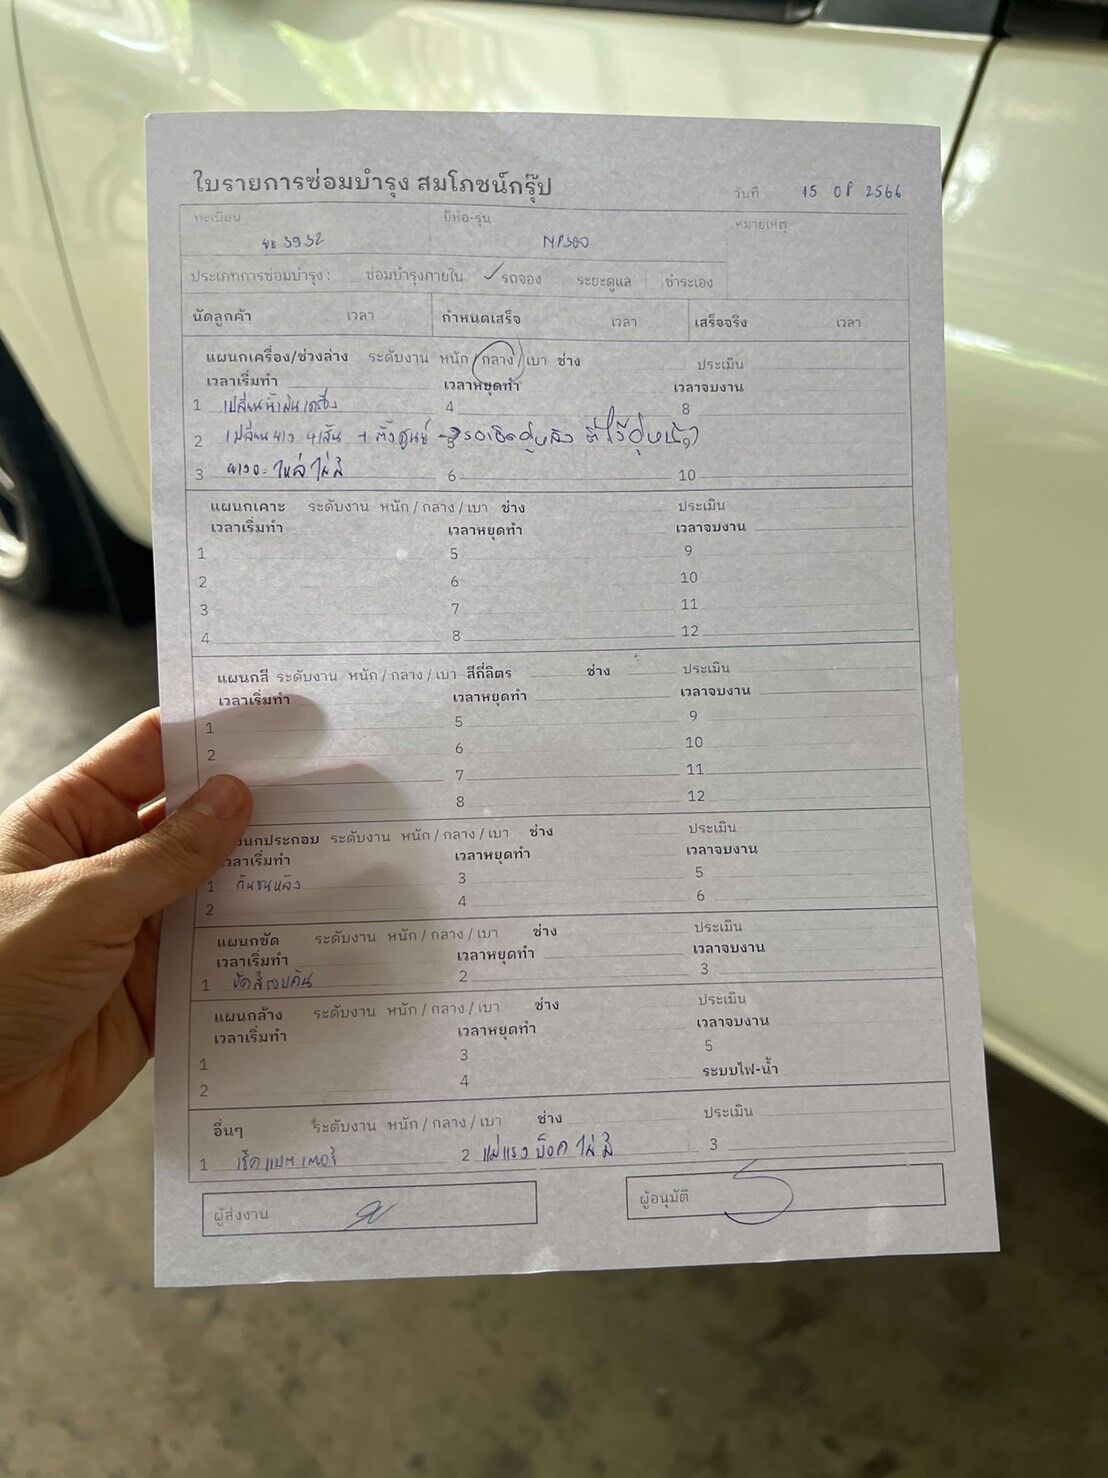 ใบรายการซ่อมบำรุง สมโภชน์กรุ๊ป วันที่ 15 08 2566
ทะเบียน ยี่ห้อ-รุ่น หมายเหตุ
3932 NP300
ประเภทการซ่อมบำรุง : ซ่อมบำรุงภายใน ✓ รถจอง ระยะดูแล ชำระเอง
นัดลูกค้า เวลา กำหนดเสร็จ เวลา เสร็จจริง เวลา
แผนกเครื่อง/ช่วงล่าง ระดับงาน หนัก / กลาง / เบา ช่าง ประเมิน
เวลาเริ่มทำ เวลาหยุดทำ เวลาจบงาน
1 เปลี่ยนน้ำมันเครื่อง 4 8
2 เปลี่ยนยาง 4 เส้น + ตั้งศูนย์
3 ยางอะไหล่ไม่มี 6 10
แผนกเคาะ ระดับงาน หนัก / กลาง / เบา ช่าง ประเมิน
เวลาเริ่มทำ เวลาหยุดทำ เวลาจบงาน
1 5 9
2 6 10
3 7 11
4 8 12
แผนกสี ระดับงาน หนัก / กลาง / เบา สีกี่ลิตร ช่าง ประเมิน
เวลาเริ่มทำ เวลาหยุดทำ เวลาจบงาน
1 5 9
2 6 10
7 11
8 12
นกประกอบ ระดับงาน หนัก / กลาง / เบา ช่าง ประเมิน
วลาเริ่มทำ เวลาหยุดทำ เวลาจบงาน
1 กันชนหลัง 3 5
2 4 6
แผนกขัด ระดับงาน หนัก / กลาง / เบา ช่าง ประเมิน
เวลาเริ่มทำ เวลาหยุดทำ เวลาจบงาน
1 ขัดสีรอบคัน 2 3
แผนกล้าง ระดับงาน หนัก / กลาง / เบา ช่าง ประเมิน
เวลาเริ่มทำ เวลาหยุดทำ เวลาจบงาน
1 3 5
2 4 ระบบไฟ-น้ำ
อื่นๆ ระดับงาน หนัก / กลาง / เบา ช่าง ประเมิน
1 เช็คแบตเตอรี่ 2 แม่แรง บ็อค ไม่มี 3
ผู้ส่งงาน ผู้อนุมัติ